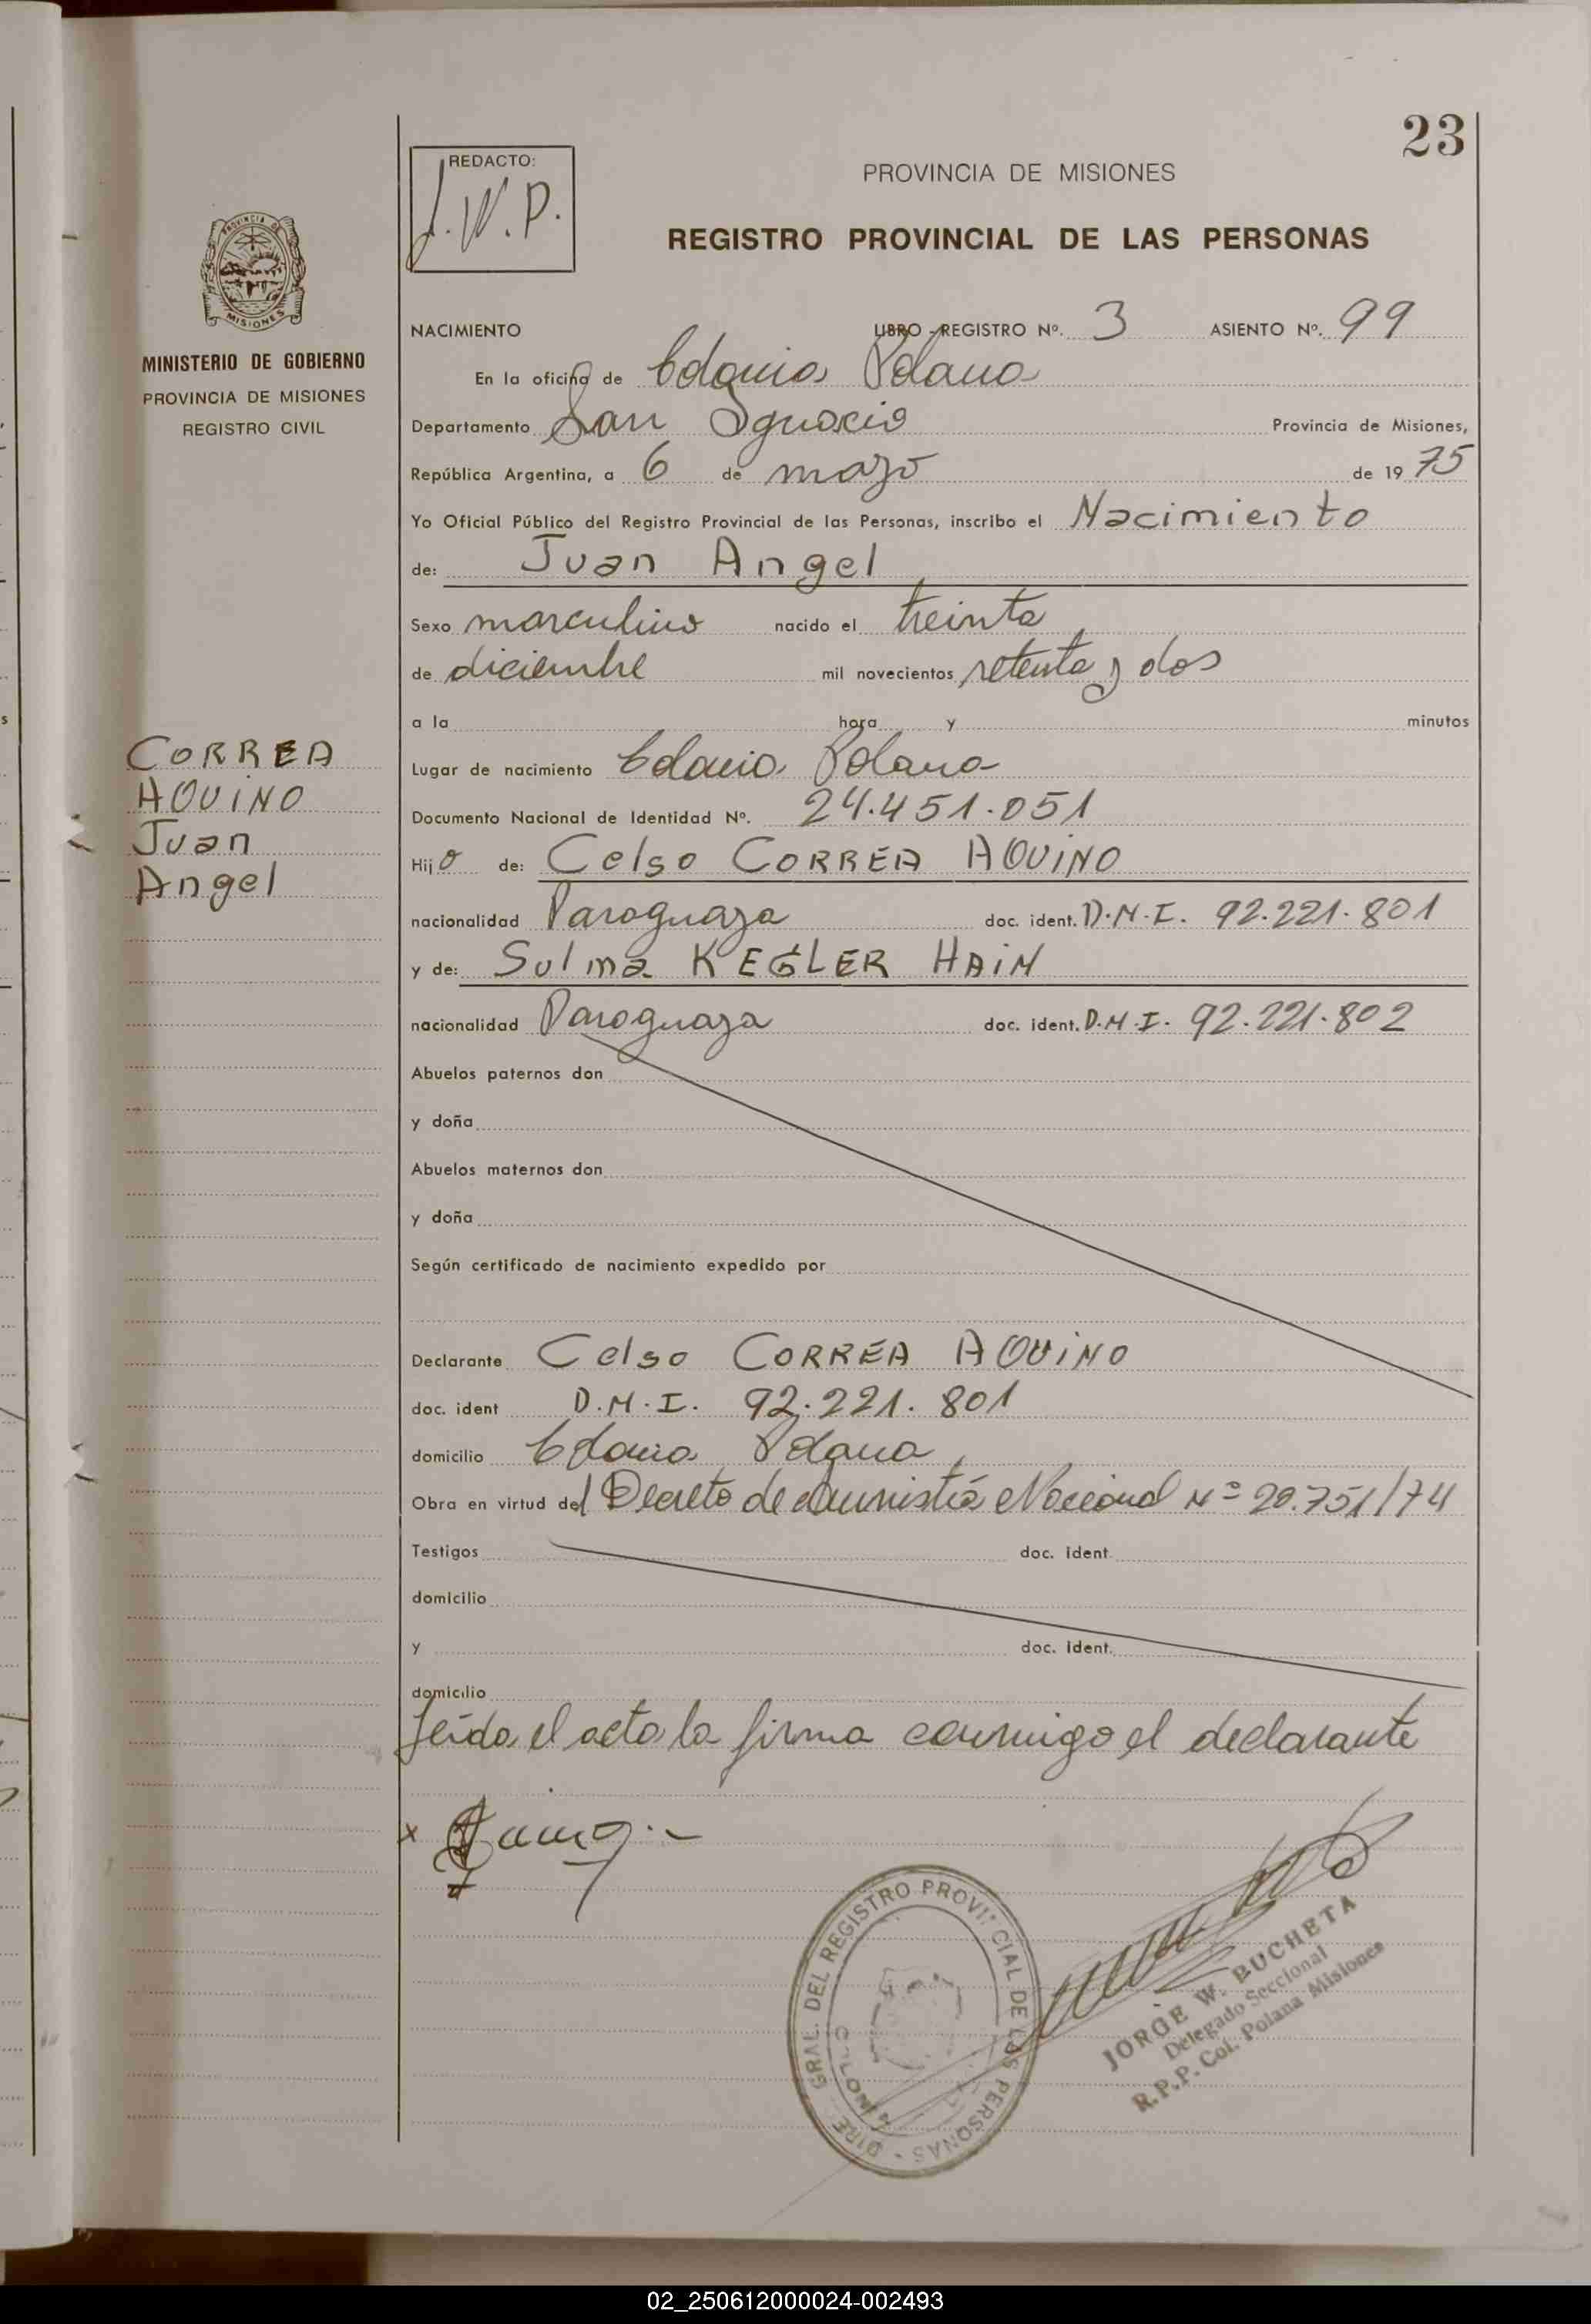 23
REDACTO:
J.W.P.
PROVINCIA DE MISIONES
REGISTRO PROVINCIAL DE LAS PERSONAS
PROVINCIA DE
MISIONES
MINISTERIO DE GOBIERNO
PROVINCIA DE MISIONES
REGISTRO CIVIL
CORREA
AQUINO
Juan
Angel
NACIMIENTO LIBRO - REGISTRO Nº. 3 ASIENTO Nº. 99
En la oficina de Colonia Polana
Departamento San Ignacio Provincia de Misiones,
República Argentina, a 6 de mayo de 19 75
Yo Oficial Público del Registro Provincial de las Personas, inscribo el Nacimiento
de: Juan Angel
Sexo masculino nacido el treinta
de diciembre mil novecientos setenta y dos
a la hora y minutos
Lugar de nacimiento Colonia Polana
Documento Nacional de Identidad Nº. 24.451.051
Hijo de: Celso CORREA AQUINO
nacionalidad Paraguaya doc. ident. D.N.I. 92.221.801
y de: Sulma KEGLER HAIN
nacionalidad Paraguaya doc. ident. D.N.I. 92.221.802
Abuelos paternos don
y doña
Abuelos maternos don
y doña
Según certificado de nacimiento expedido por
Declarante Celso CORREA AQUINO
doc. ident D.N.I. 92.221.801
domicilio Colonia Polana
Obra en virtud del Decreto de Amnistía Nacional Nº 20.751/74
Testigos doc. ident.
domicilio
y doc. ident.
domicilio
Leída el acta la firma conmigo el declarante
x
GRAL. DEL REGISTRO PROVINCIAL DE LAS PERSONAS - DIRE
JORGE W. BUCHETA
Delegado Seccional
R.P.P. Col. Polana Misiones
02_250612000024-002493